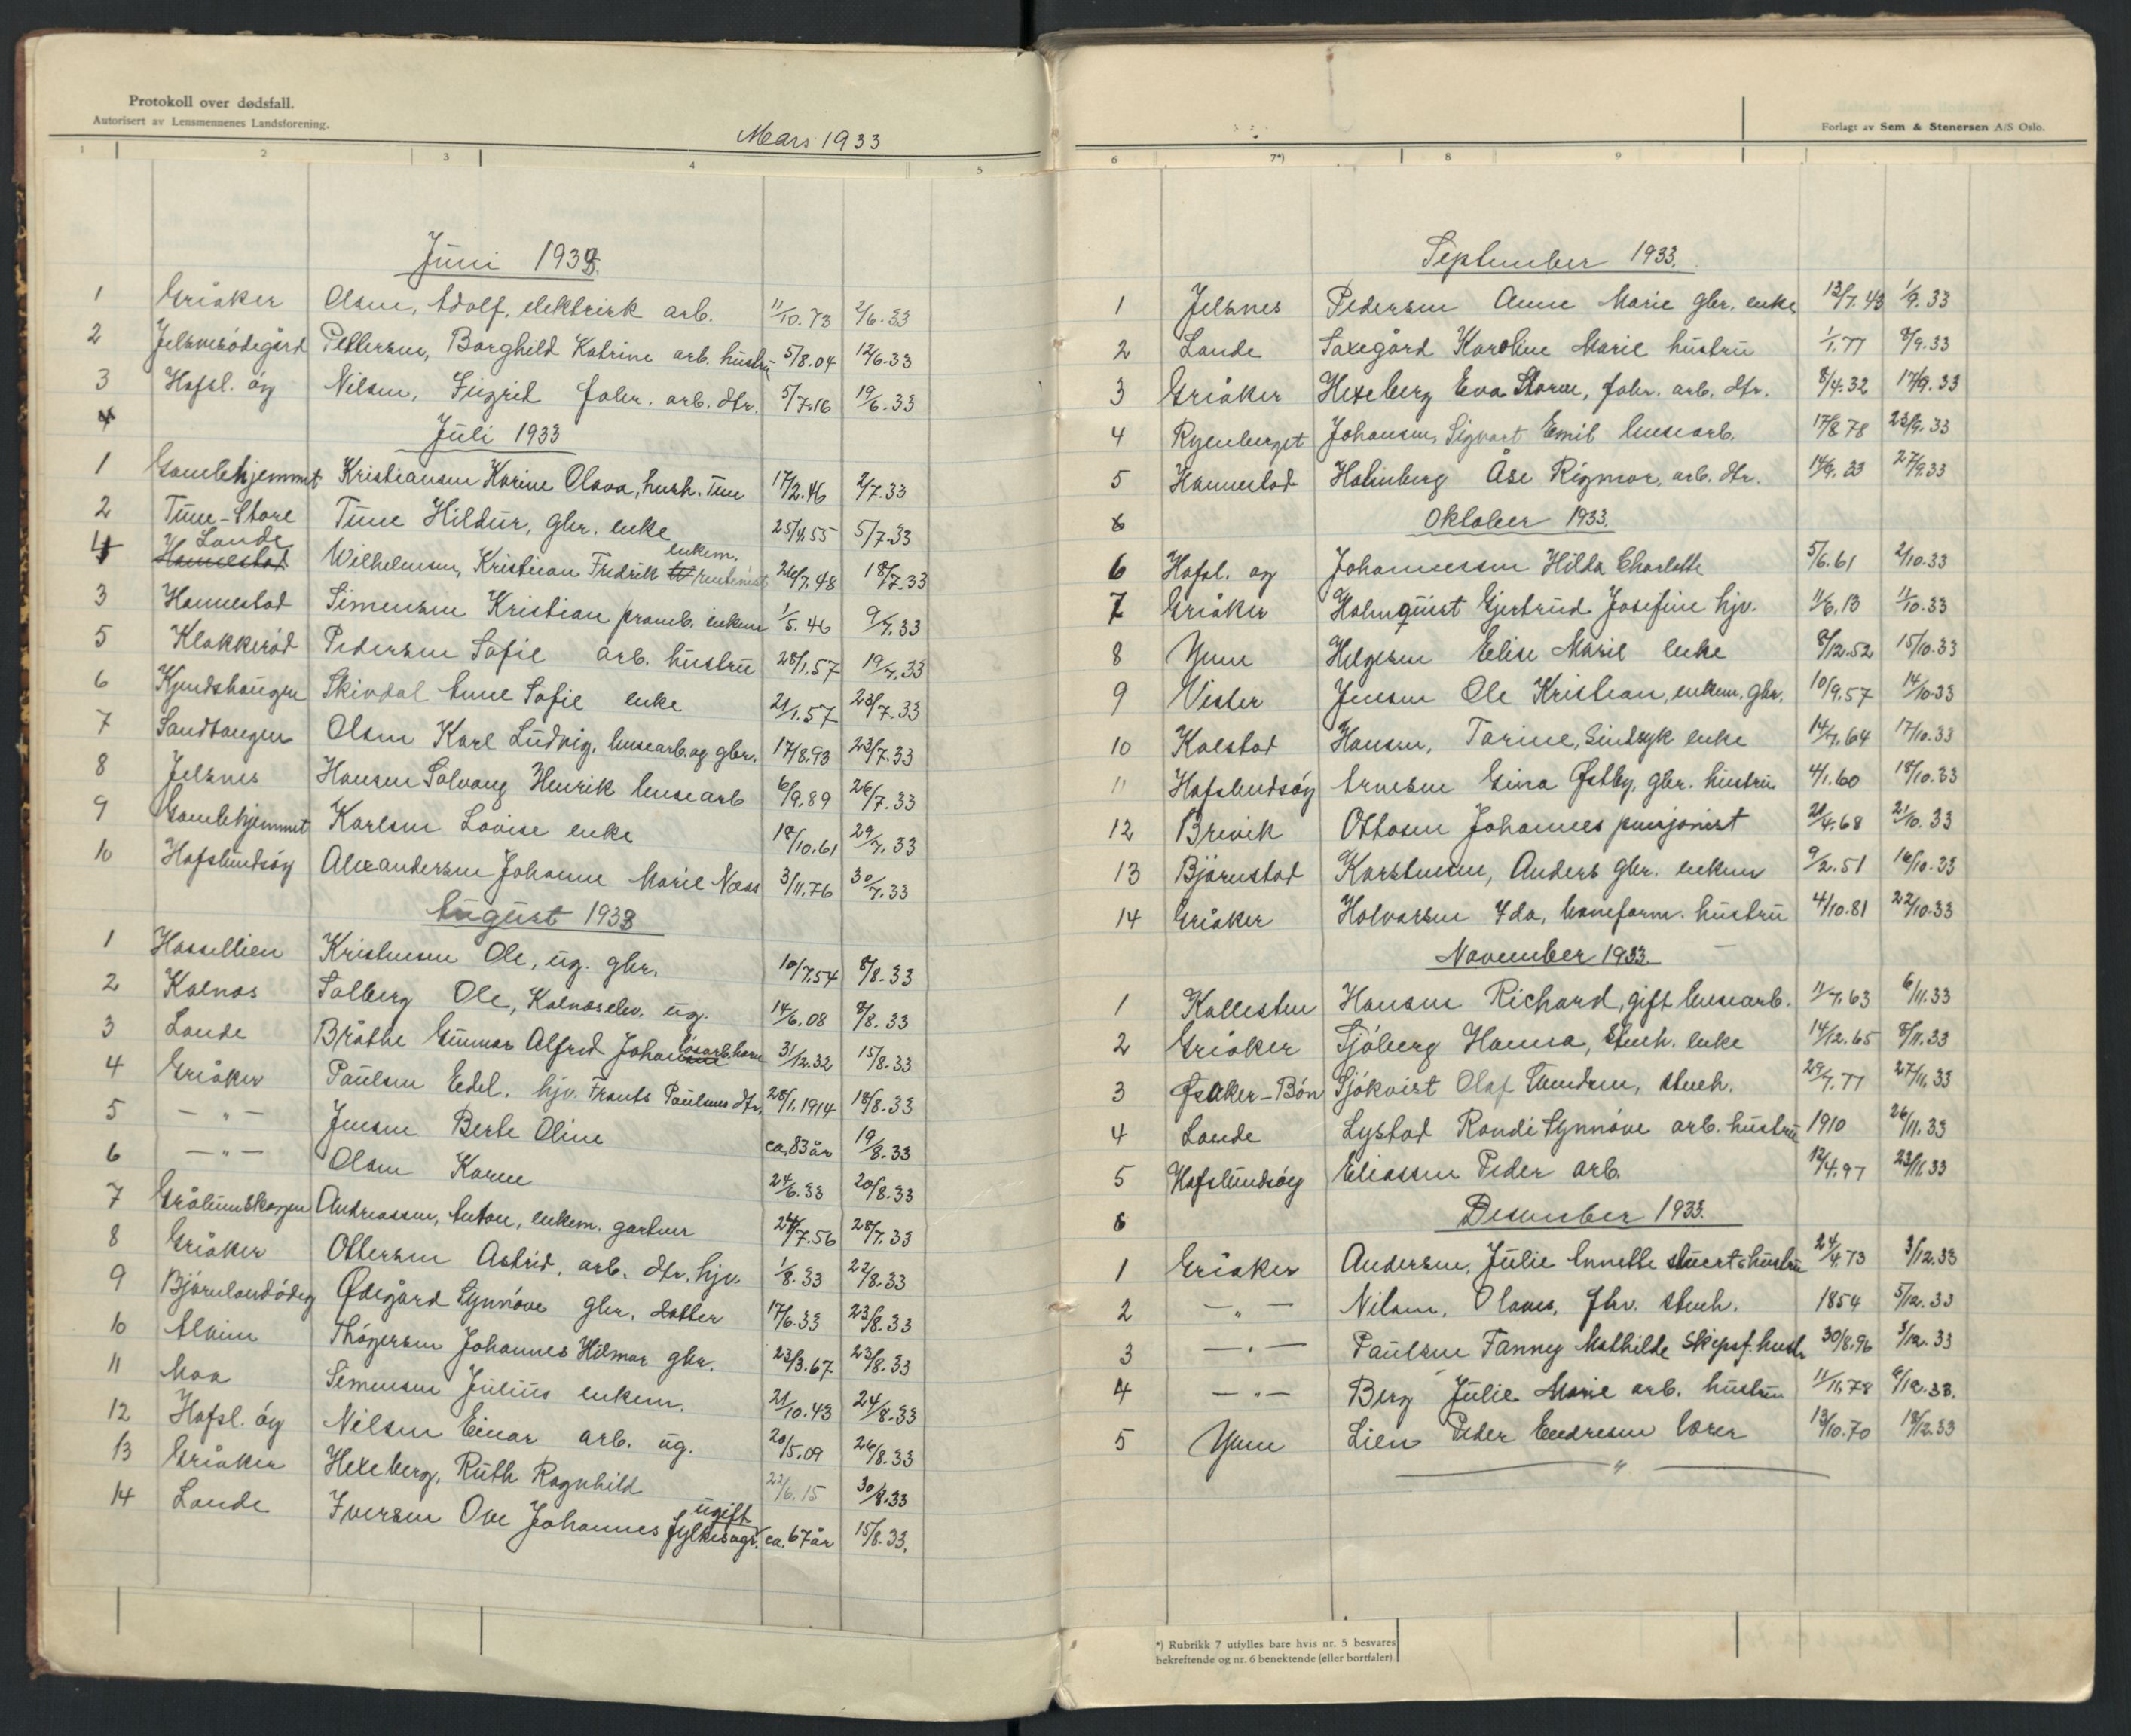 Protokoll over dødsfall.
Autorisert av Lensmennenes Landsforening.
Mars 1933
1 2 3 4 5
Juni 1933.
1 Gråker Olsen, Adolf, elektrisk arb. 11/10.73 2/6.33
2 Jelsnesödegård Pettersen, Borghild Katrine arb. hustru 5/8.04 12/6.33
3 Hafsl. öy Nilsen, Sigrid fabr. arb. dtr. 5/7.16 19/6.33
4
Juli 1933
1 Gamlehjemmet Kristiansen Karine Olava, hush. Tune 17/2.46 2/7.33
2 Tune-Store Tune Hildur, gbr. enke 25/4.55 5/7.33
Lande enkem.
4 Hannestad Wilhelmsen, Kristian Fredrik rentenist 26/7.48 18/7.33
3 Hannestad Simensen Kristian pramb. enkem 1/5.46 9/7.33
5 Klokkeröd Pedersen Sofie arb. hustru 28/1.57 19/7.33
6 Kjendshaugen Skivdal Anne Sofie enke 21/1.57 23/7.33
7 Sandtangen Olsen Karl Ludvig, lensearb. og gbr. 17/8.93 23/7.33
8 Jelsnes Hansen Solvang Henrik lensearb 6/9.89 26/7.33
9 Gamlehjemmet Karlsen Lovise enke 18/10.61 29/7.33
10 Hafslundsöy Alexandersen Johanne Marie Næss 3/11.76 30/7.33
August 1933
1 Hassellien Kristensen Ole, ug. gbr. 10/7.54 8/8.33
2 Kalnæs Solberg Ole, Kalnæselev, ug. 14/6.08 8/8.33
3 Lande Bråthe Gunnar Alfred Johan lösarb. barn 3/12.32 15/8.33
4 Gråker Paulsen Edel, hjv. Frants Paulsens dtr. 28/1.1914 18/8.33
5 -"- Jensen Berte Oline ca. 83 år 19/8.33
6 -"- Olsen Karen 24/6.33 20/8.33
7 Grålumskogen Andreassen, Anton, enkem. gartner 24/7.56 28/7.33
8 Gråker Ottersen Astrid, arb. dtr. hjv. 1/8.33 22/8.33
9 Björnlandödeg Ødegård Synnöve gbr. datter 17/6.33 23/8.33
10 Alvim Thögersen Johannes Hilmar gbr. 23/3.67 23/8.33
11 Moa Simensen Julius enkem. 21/10.43 24/8.33
12 Hafsl. öy Nilsen Einar arb. ug. 20/5.09 26/8.33
13 Gråker Hexeberg, Ruth Ragnhild 23/6.15 30/8.33
ugift
14 Lande Iversen Ove Johannes fylkesagr. ca. 67 år 15/8.33.
Forlagt av Sem & Stenersen A/S Oslo.
6 7*) 8 9
September 1933.
1 Jelsnes Pedersen Anne Marie gbr. enke 13/7.43 1/9.33
2 Lande Saxegård Karoline Marie hustru 1/1.77 8/9.33
3 Gråker Hexeberg Eva Storm, fabr. arb. dtr. 8/4.32 17/9.33
4 Ryenberget Johansen, Sigvart Emil lensearb. 17/8 78 23/9.33
5 Hannestad Holmberg Åse Rigmor, arb. dtr. 14/9.33 27/9.33
6
Oktober 1933.
6 Hafsl. öy Johannessen Hilda Charlotte 5/6.61 2/10.33
7 Gråker Holmquist Gjertrud Josefine hjv. 11/6.13 11/10.33
8 Yven Helgesen Elise Marie enke 8/12.52 15/10.33
9 Vister Jensen Ole Kristian, enkem. gbr. 10/9.57 14/10.33
10 Kalstad Hansen, Tarine, Sindsyk enke 14/7.64 17/10.33
11 Hafslundsöy Arnesen Gina Østby, gbr. hustru 4/1.60 18/10.33
12 Brevik Ottosen Johannes pensjonist 21/4.68 21/10.33
13 Björnstad Karstensen, Anders gbr. enkem 9/2.51 16/10.33
14 Gråker Halvorsen Ida, baneform. hustru 4/10.81 22/10.33
November 1933.
1 Kallesten Hansen Richard, gift lensearb. 11/7.63 6/11.33
2 Gråker Sjöberg Hanna, Stueh. enke 14/12.65 8/11.33
3 Øsaker-Bön Sjökvist Olaf Amandun, stueh. 29/7.77 27/11.33
4 Lande Lystad Randi Synnöve arb. hustru 1910 26/11.33
5 Hafslundsöy Eliassen Peder arb. 12/4.97 23/11.33
6
Desember 1933.
1 Gråker Andersen, Julie Annette stuert's hustru 24/4.73 3/12.33
2 -"- Nilsen, Olaves, fhv. stueh. 1854 5/12.33
3 -"- Paulsen Fanny Mathilde Skipsf. hustr 30/8.96 3/12.33
4 -"- Berg Julie Marie arb. hustru 11/11.78 6/12.33.
5 Yven Lien Peder Endresen lærer 13/10.70 18/12.33
"
*) Rubrikk 7 utfylles bare hvis nr. 5 besvares
bekreftende og nr. 6 benektende (eller bortfaler).